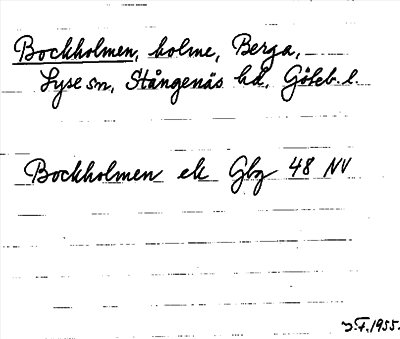 Bockholmen, holme, Berga,
Lyse sn, Stångenäs hd, Göteb. l.
Bockholmen ek Gbg 48 NV
J.F. 1955.